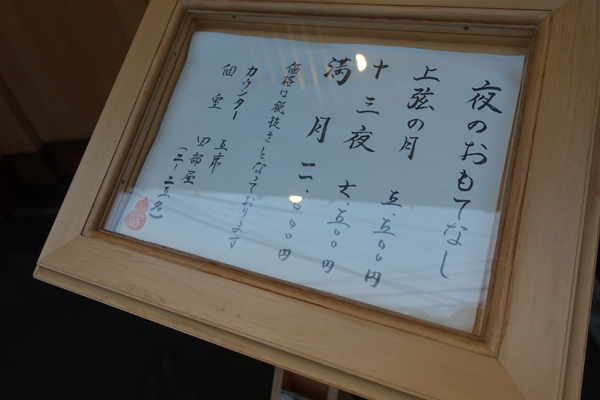 夜のおもてなし
上弦の月 五.五〇〇円
十三夜 .五〇〇円
満月 一一.〇〇〇円
価格は税抜きとなっております
カウンター 五席
個室 四部屋